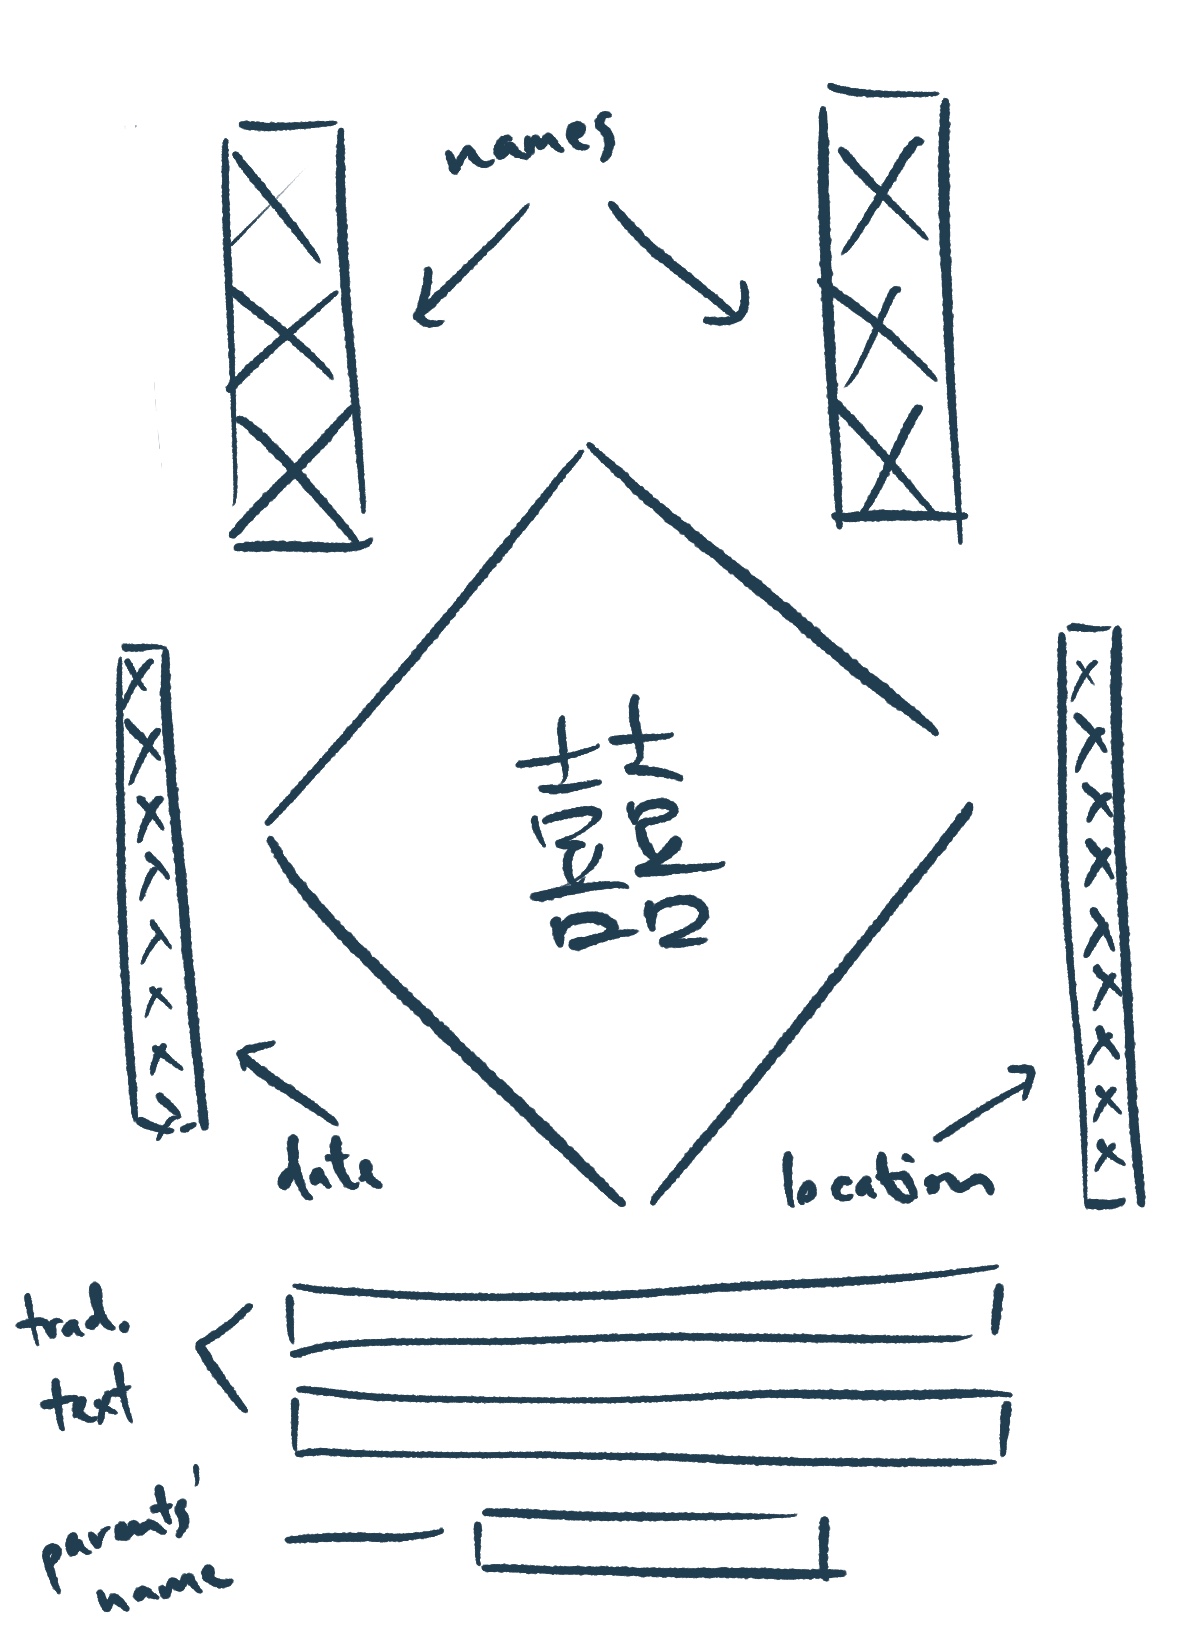 names
囍
date
location
trad.
text
parents'
name